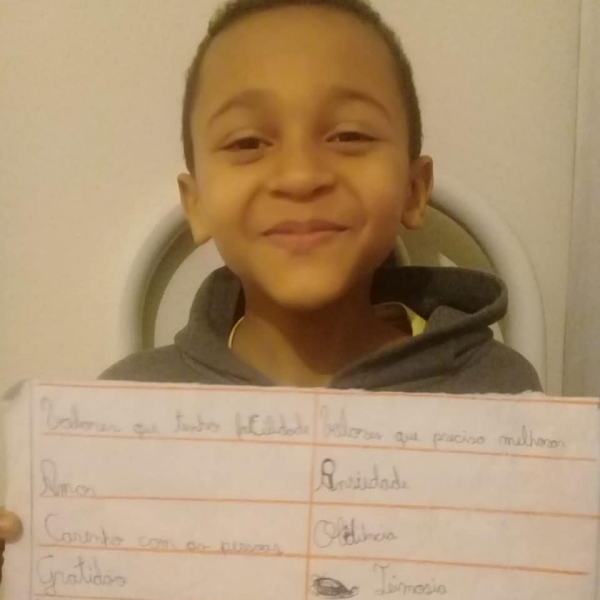 Valores que tenho facilidade
Valores que preciso melhorar
Amor
Ansiedade
Carinho com as pessoas
Obidiência
Gratidão
Teimosia